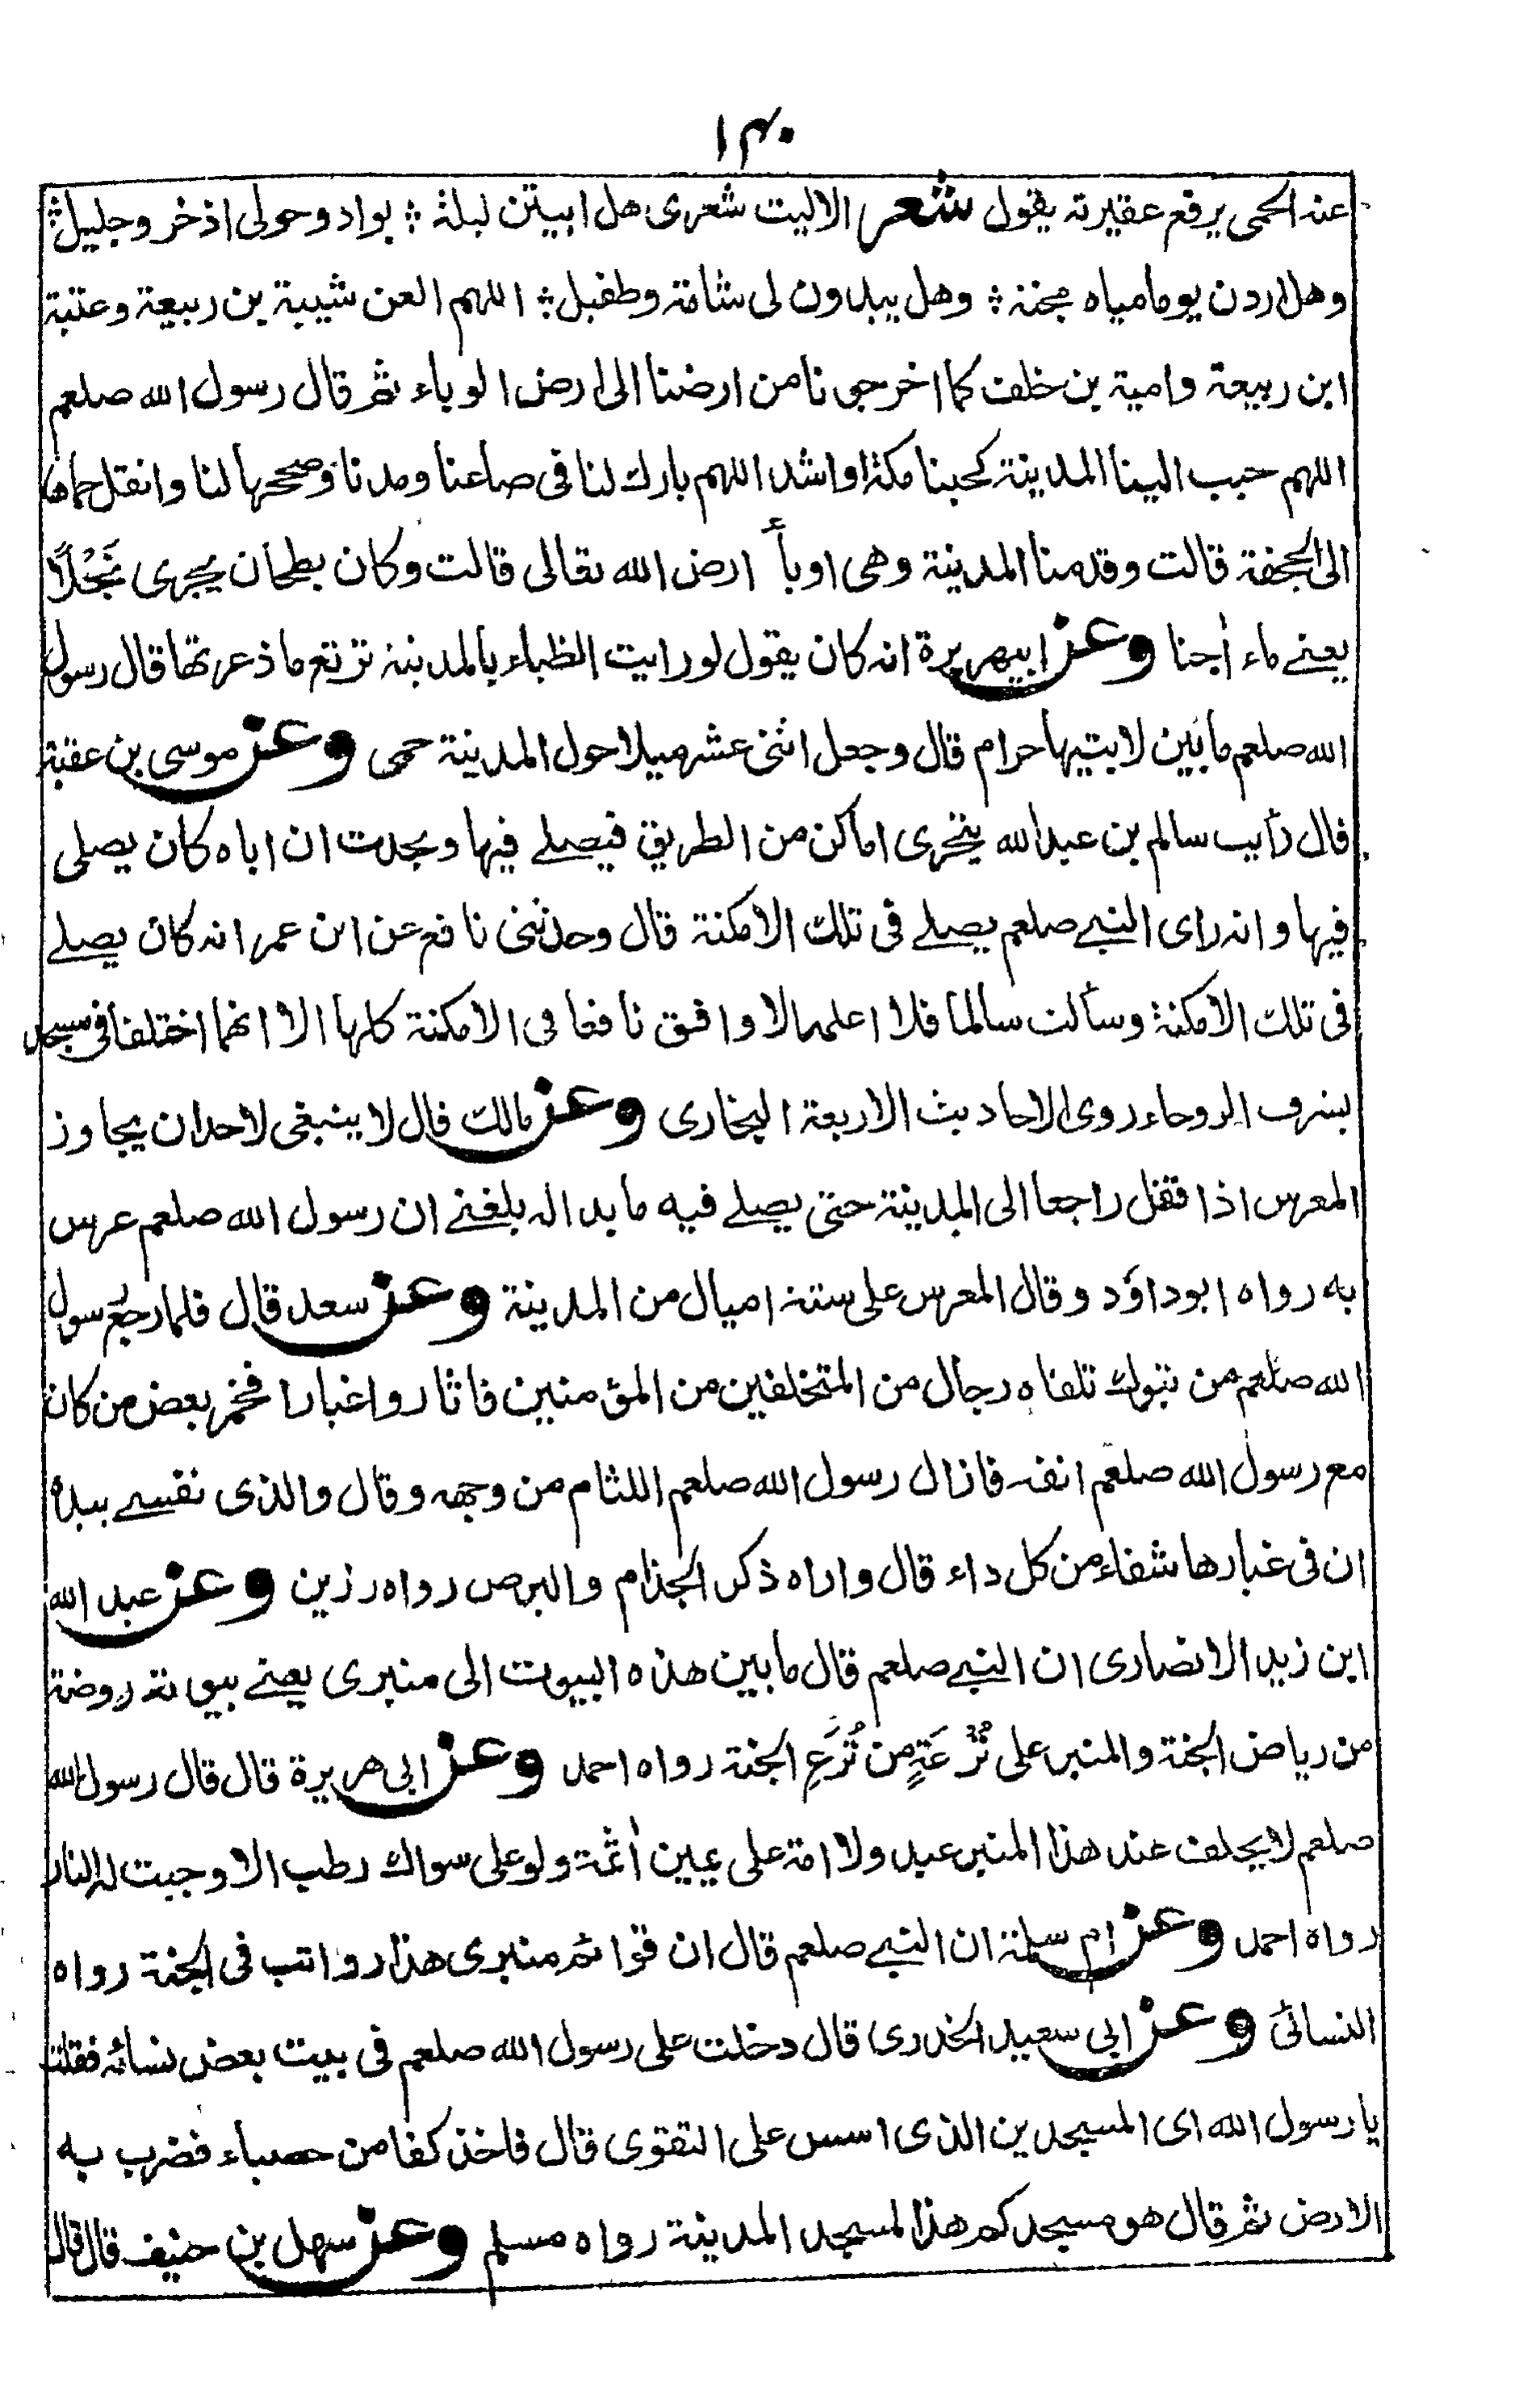 ١٣٠
عنه الحمى يرفع عقيرته يقول شعر الا ليت شعرى هل ابيتن ليلة ؛ بواد وحولى اذخر وجليل ؛
وهل اردن يوما مياه مجنة ؛ وهل يبدون لى شامة وطفيل ؛ اللهم العن شيبة بن ربيعة وعتبة
ابن ربيعة وامية بن خلف كما اخرجونا من ارضنا الى ارض الوباء ثم قال رسول الله صلعم
اللهم حبب الينا المدينة كحبنا مكة او اشد اللهم بارك لنا فى صاعنا ومدنا وصححها لنا وانقل حماها
الى الجحفة قالت وقدمنا المدينة وهى اوبأ ارض الله تعالى قالت وكان بطحان يجرى نَجْلًا
يعنے ماء اٰجنا وعن ابيهريرة انه كان يقول لو رايت الظباء بالمدينة ترتع ما ذعرتها قال رسول
الله صلعم ما بين لابتيها حرام قال وجعل اثنى عشر ميلا حول المدينة حمى وعن موسى بن عقبة
قال رأيت سالم بن عبد الله يتحرى اماكن من الطريق فيصلے فيها ويحدث ان اباه كان يصلى
فيها وانه راى النبے صلعم يصلے فى تلك الامكنة قال وحدثنى نافع عن ابن عمر انه كان يصلے
فى تلك الامكنة وسألت سالما فلا اعلمه الا وافق نافعا فى الامكنة كلها الا انهما اختلفا فى مسجد
بشرف الروحاء روى الاحاديث الاربعة البخارى وعن مالك قال لا ينبغى لاحد ان يجاوز
المعرس اذا قفل راجعا الى المدينة حتى يصلے فيه ما بدا له بلغنے ان رسول الله صلعم عرس
به رواه ابو داؤد وقال المعرس على ستة اميال من المدينة وعن سعد قال فلما رجع رسول
الله صلعم من تبوك تلقاه رجال من المتخلفين من المؤمنين فاثاروا غبارا فخمر بعض من كان
مع رسول الله صلعم انفه فازال رسول الله صلعم اللثام من وجهه وقال والذى نفسے بيده
ان فى غبارها شفاء من كل داء قال واراه ذكر الجذام والبرص رواه رزين وعن عبد الله
ابن زيد الانصارى ان النبے صلعم قال ما بين هذه البيوت الى منبرى يعنے بيوته روضة
من رياض الجنة والمنبر على تُرْعَةٍ من تُرَعِ الجنة رواه احمد وعن ابى هريرة قال قال رسول الله
صلعم لا يحلف عند هذا المنبر عبد ولا امة على يمين اٰثمة ولو على سواك رطب الا وجبت له النار
رواه احمد وعن ام سلمة ان النبے صلعم قال ان قوائم منبرى هذا رواتب فى الجنة رواه
النسائى وعن ابى سعيد الخدرى قال دخلت على رسول الله صلعم فى بيت بعض نسائه فقلت
يا رسول الله اى المسجدين الذى اسس على التقوى قال فاخذ كفا من حصباء فضرب به
الارض ثم قال هو مسجدكم هذا لمسجد المدينة رواه مسلم وعن سهل بن حنيف قال قال